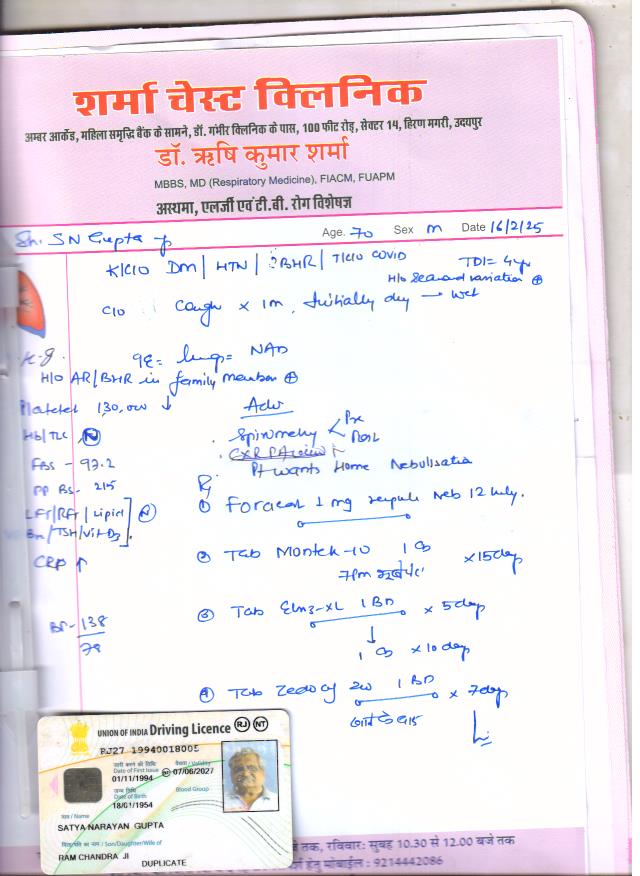 शर्मा चेस्ट क्लिनिक
अम्बर आर्केड, महिला समृद्धि बैंक के सामने, डॉ. गंभीर क्लिनिक के पास, 100 फीट रोड़, सेक्टर 14, हिरण मगरी, उदयपुर
डॉ. ऋषि कुमार शर्मा
MBBS, MD (Respiratory Medicine), FIACM, FUAPM
अस्थमा, एलर्जी एवं टी.बी. रोग विशेषज्ञ
Sh. SN Gupta Age. 70 Sex M Date 16/2/25
K/C/O DM / HTN / ?BHR / COVID
H/o variation ⊕
C/O Cough × 1m, Initially dry → wet
lung = NAD
H/O AR/BHR in family member ⊕
Platelet 130,000 ↓
Adv
Hb/TLC (N)
Spirometry
CXR PA view
Pt wants Home Nebulisation
FBS - 97.2
PP BS - 215
LFT/RFT/Lipid (N)
TSH/Vit-D3
CRP ↑
BP - 138/78
① 1 mg Neb 12 hrly.
② Tab Montek-10 × 15 day
7pm
③ Tab 1 BD × 5 day
↓
× 10 day
④ Tab 1 BD × 7 day
UNION OF INDIA Driving Licence RJ NT
RJ27 19940018005
जारी करने की तिथि
Date of First Issue
01/11/1994
वैधता / Validity
07/06/2027
जन्म तिथि
Date of Birth
18/01/1954
Blood Group
नाम / Name
SATYA NARAYAN GUPTA
Son/Daughter/Wife of
RAM CHANDRA JI
DUPLICATE
तक, रविवार: सुबह 10.30 से 12.00 बजे तक
हेतु मोबाईल : 9214442086